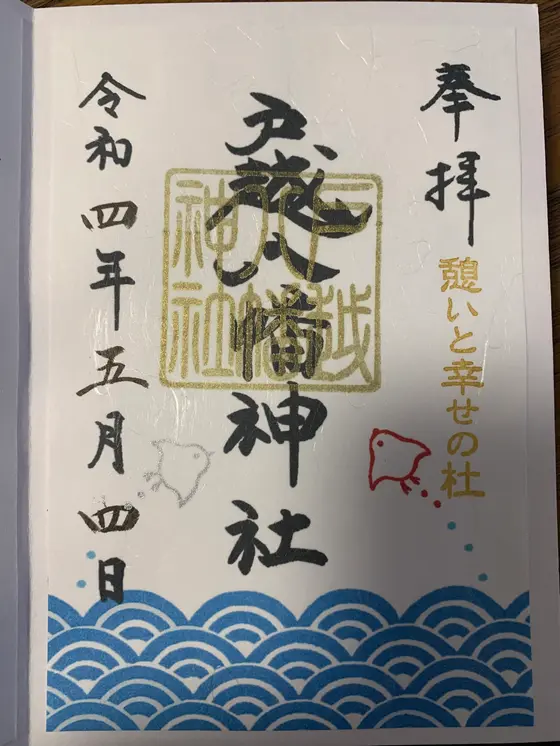 奉拝
憩いと幸せの杜
戸越八幡神社
戸越八幡神社
令和四年五月四日